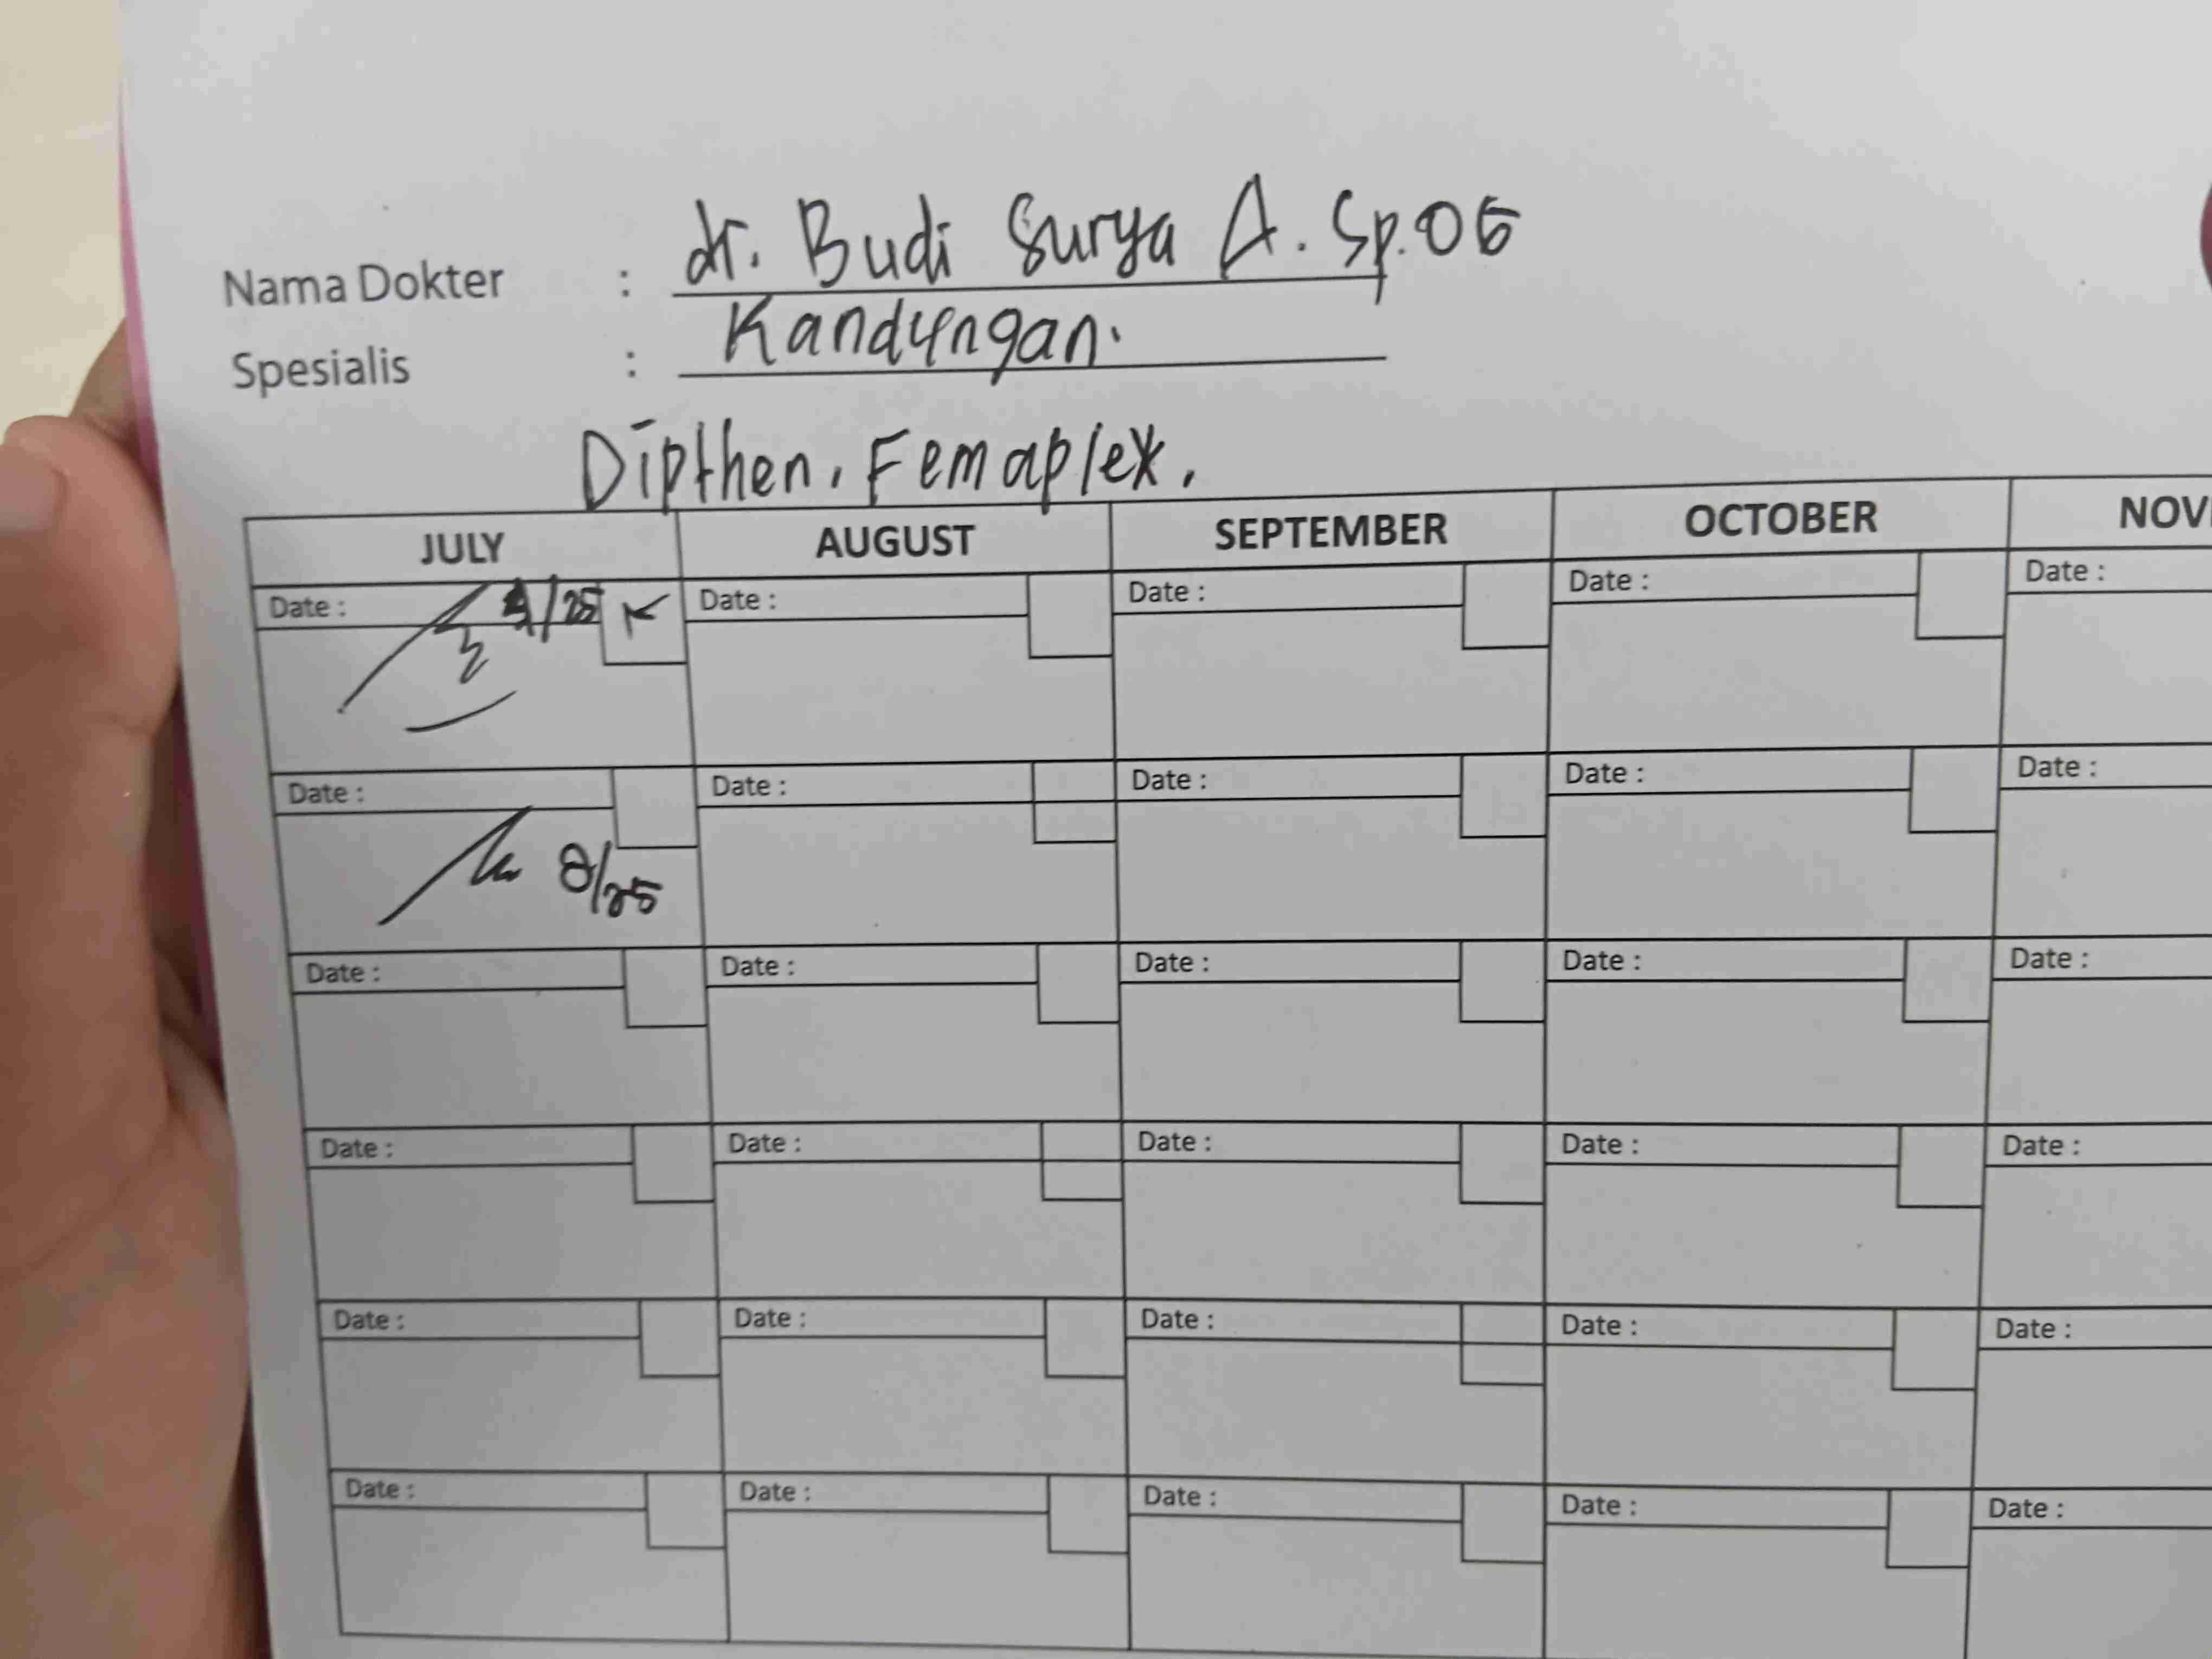 Nama Dokter : dr. Budi Surya A. Sp.OG
Spesialis : Kandungan.
Dipthen, Femaplex.
JULY AUGUST SEPTEMBER OCTOBER NOV
Date : /25 Date : Date : Date : Date :
Date : Date : Date : Date : Date :
8/25
Date : Date : Date : Date : Date :
Date : Date : Date : Date : Date :
Date : Date : Date : Date : Date :
Date : Date : Date : Date : Date :